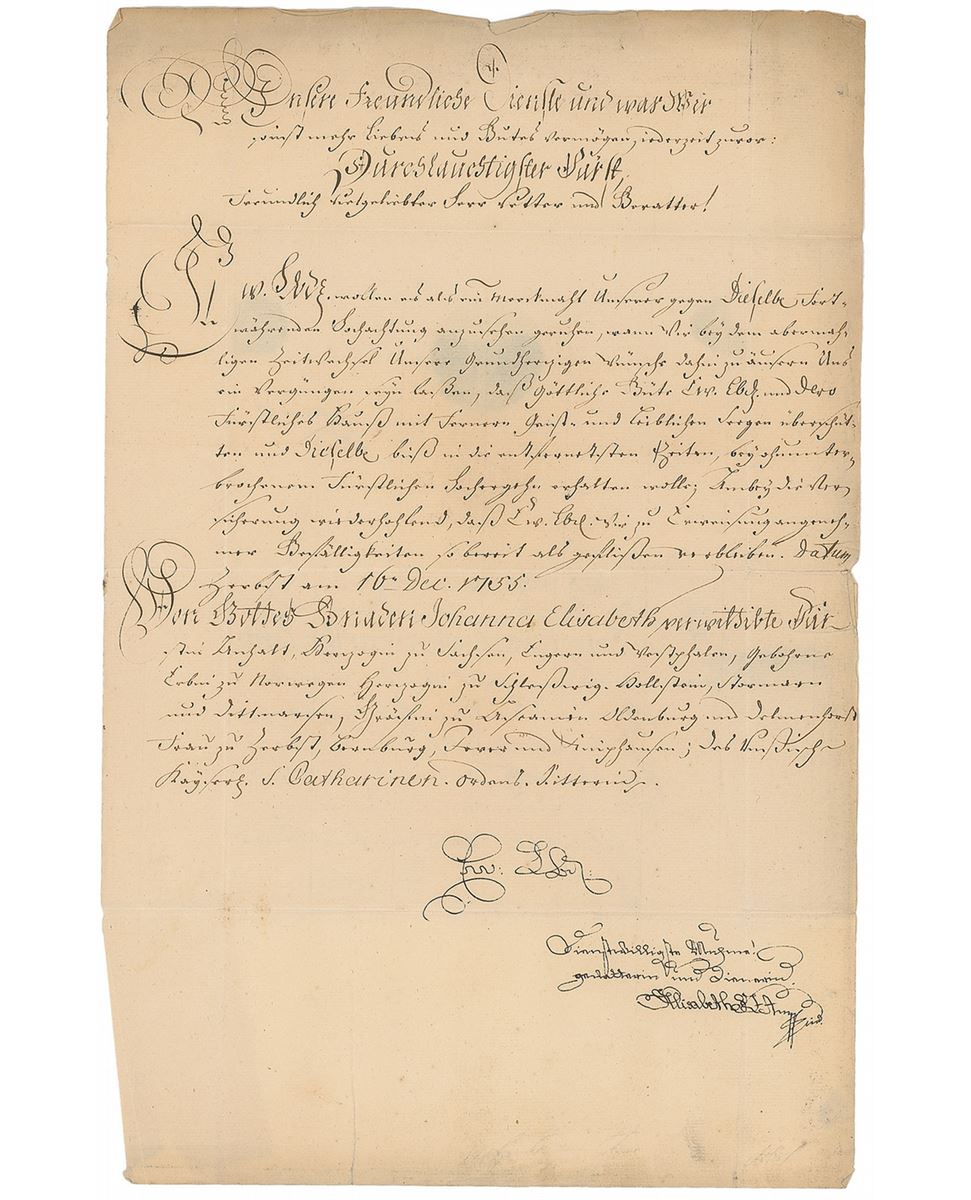 Unsere Freundliche Dienste und was Wir
sonst mehr Liebes und Gutes vermögen, iederzeit zuvor:
Durchlauchtigster Fürst,
Freundlich vielgeliebter Herr Vetter und Gevatter!
Ew. Lbd. wollen es als ein Merckmahl Unserer gegen Dieselbe fort-
währenden Hochachtung anzusehen geruhen, wann Wir bey dem abermah-
ligen Zeitwechsel Unsere Grundhertzigen Wünsche dahin zu äusern Uns
ein Vergnügen seyn laßen, daß Göttliche Güte Ew. Lbd. und Dero
Fürstliches Hauß mit Fernern Geist- und Leiblichen Seegen überschüt-
ten und Dieselbe biß in die entferntesten Zeiten, bey ohnunter-
brochenem Fürstlichen Hochergehn erhalten wolle; Anbey die Ver-
sicherung wiederhohlend, daß Ew. Lbd. Wir zu Erweisung angeneh-
mer Gefälligkeiten so bereit als geflißen verbleiben. Datum
Zerbst am 16ten Dec. 1755.
Von Gottes Gnaden Johanna Elisabeth, verwittibte Für-
stin zu Anhalt, Hertzogin zu Sachsen, Engern und Westphalen, Gebohrne
Erbin zu Norwegen Hertzogin zu Schleßwig-Hollstein, Stormarn
und Dittmarsen, Gräfin zu Ascanien Oldenburg und Delmenhorst
Frau zu Zerbst, Bernburg, Jever und Kniphausen; des Rußisch
Kayserl. S. Catharinen-Ordens-Ritterin.
Ew: Lbd:
Dienstwilligste Muhme
gevatterin und Dienerin
Elisabeth F Z A